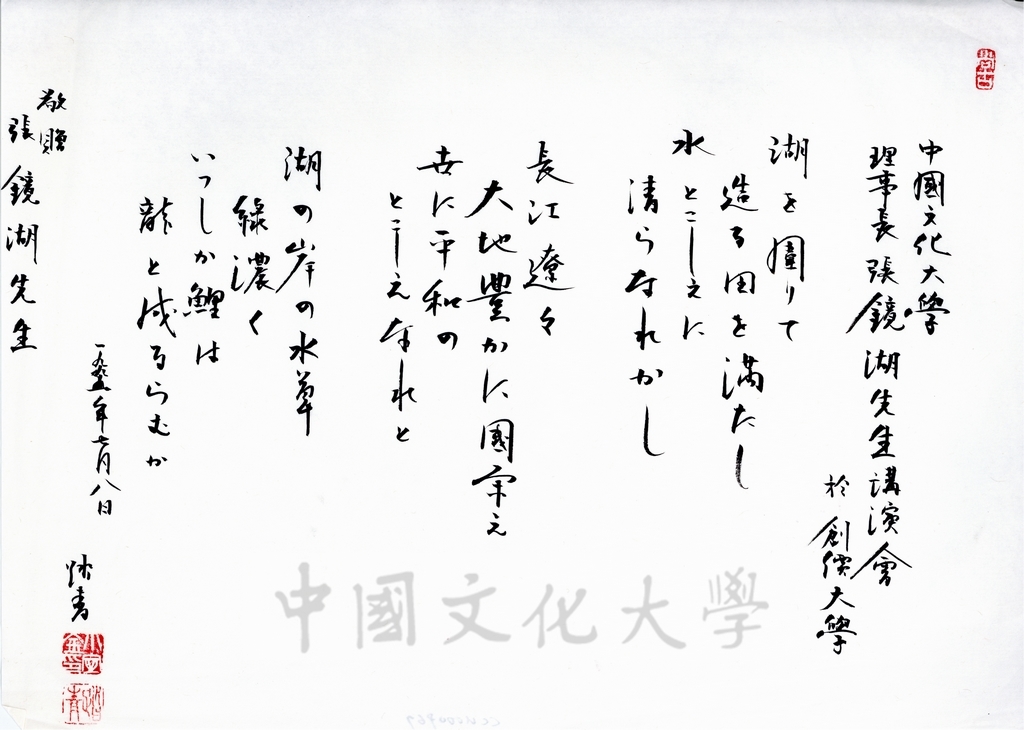 中國文化大學
理事長張鏡湖先生講演會
於創價大學
湖を圍りて
造る田を満たし
水とこしえに
清らなれかし
長江遼々
大地豊かに國栄え
世に平和の
とこしえなれと
湖の岸の水草
緑濃く
いつしか鯉は
龍と成るらむか
一九九五年七月八日
敬贈
張鏡湖先生
中國文化大學